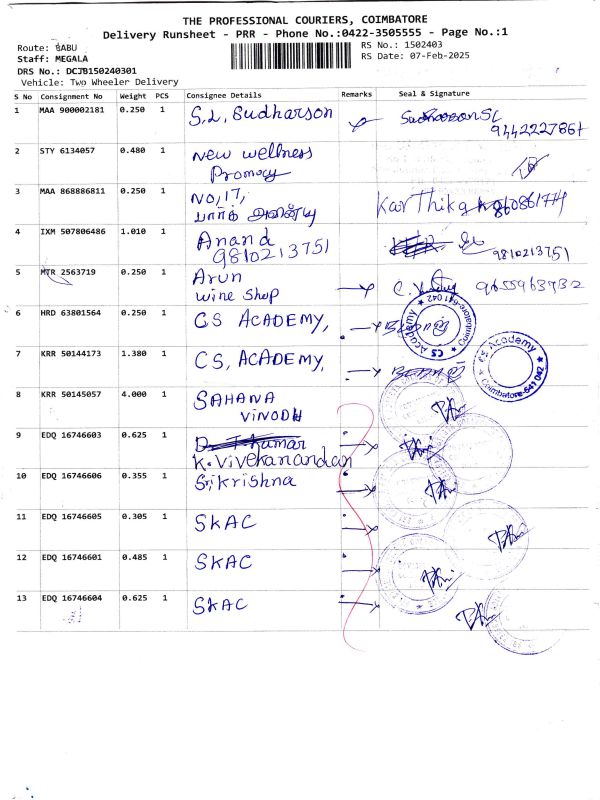 THE PROFESSIONAL COURIERS, COIMBATORE
Delivery Runsheet - PRR - Phone No.:0422-3505555 - Page No.:1
Route: BABU
RS No.: 1502403
Staff: MEGALA
RS Date: 07-Feb-2025
DRS No.: DCJB150240301
Vehicle: Two Wheeler Delivery
S No Consignment No Weight PCS Consignee Details Remarks Seal & Signature
1 MAA 900002181 0.250 1 S.L. Sudharson Sudharson SL
9442227867
2 STY 6134057 0.480 1 New wellness
Promocy
3 MAA 868886811 0.250 1 NO, 17, Karthik
பார்க்
4 IXM 507806486 1.010 1 Anand
9810213751 9810213751
5 MTR 2563719 0.250 1 Arun
wine shop
6 HRD 63801564 0.250 1 CS ACADEMY,
CS Academy Coimbatore-641 042
7 KRR 50144173 1.380 1 CS, ACADEMY,
CS Academy Coimbatore-641 042
8 KRR 50145057 4.000 1 SAHANA
VINODH
9 EDQ 16746603 0.625 1
K. Vivekanandan
10 EDQ 16746606 0.355 1 Srikrishna
11 EDQ 16746605 0.305 1 SKAC
12 EDQ 16746601 0.485 1 SKAC
13 EDQ 16746604 0.625 1 SKAC